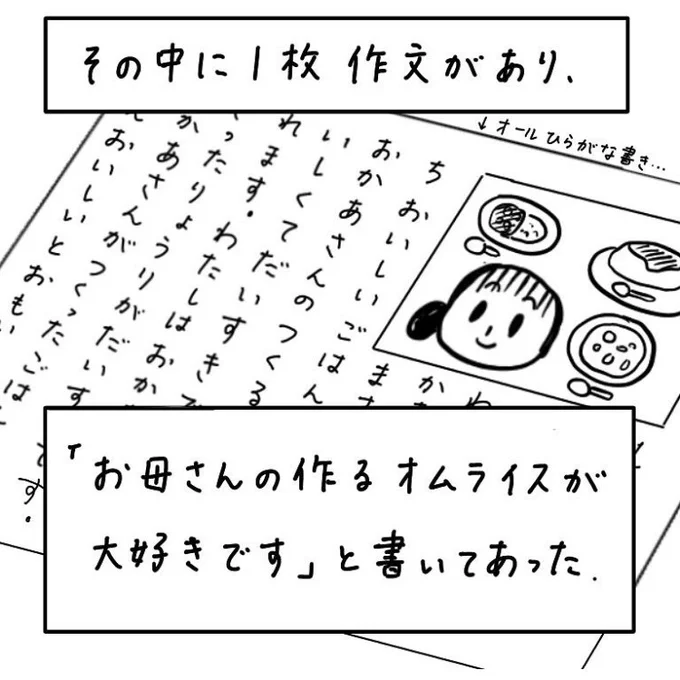 その中に1枚 作文があり、
↓オールひらがな書き…
ちおいしいごはん
おかあさんのつくる
いしくてだいすきで
れます。わたしはおか
ったりょうりがだいす
かあさんがつくったごは
おいしいとおもい
す。
「お母さんの作るオムライスが
大好きです」と書いてあった.